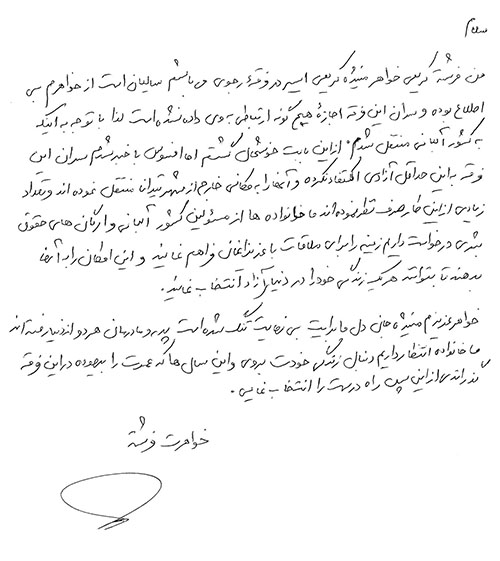 سلام
من فرشته کریمی خواهر منیژه کریمی اسیر در فرقهٔ رجوی می باشم سالیان است از خواهرم بی
اطلاع بوده و سران این فرقه اجازهٔ هیچ گونه ارتباطی به وی داده نشده است لذا با توجه به اینکه
به کشور آلبانی منتقل شدم. از این بابت خوشحال گشتم اما افسوس با خبر شدم سران این
فرقه به این حداقل آزادی اکتفاء نکرده و آنها را به مکانی خارج از شهر تیرانا منتقل نموده اند و تعداد
زیادی از این کار صرف نظر نموده اند ما خانواده ها از مسئولین کشور آلبانی و ارگان های حقوق
بشری درخواست داریم زمینه را برای ملاقات با عزیزانمان فراهم نمایند و این امکان را به آنها
بدهند تا بتوانند هر یک زندگی خود را در دنیای آزاد انتخاب نمایند.
خواهر عزیزم منیژه جان دل ما برایت بی نهایت تنگ شده است پدر و مادرمان هر دو از دنیا رفته اند
ما خانواده انتظار داریم دنبال زندگی خودت بروی و این سال ها که عمرت را بیهوده در این فرقه
گذراندی از این پس راه درست را انتخاب نمایی.
خواهرت فرشته